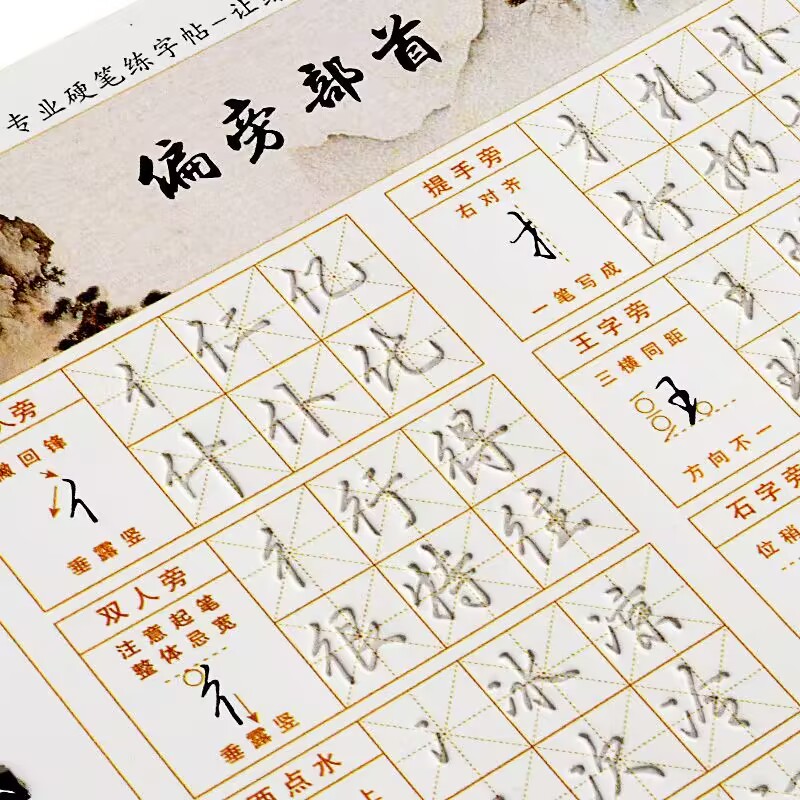 专业硬笔练字帖-让
偏旁部首
人旁
撇回锋
垂露竖
亻 仁 亿
什 仆 化
双人旁
注意起笔
整体忌宽
垂露竖
彳 行 得
很 特 往
两点水
冫 冰 凉
次 冷
提手旁
右对齐
扌
一笔写成
扌 扎 扑
打 扔
王字旁
三横同距
王
方向不一
王
石字旁
位稍